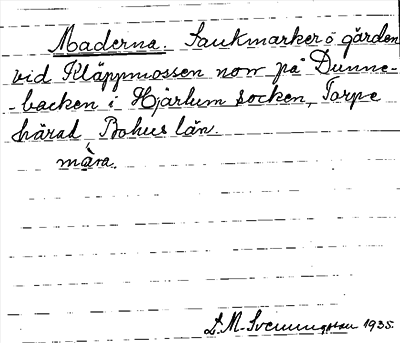 Maderna. Saukmarker å gården
vid Kläppmossen norr på Dunne-
-backen i Hjärtum socken, Torpe
härad, Bohus län.
màra.
L. M. Svenungsson 1935.